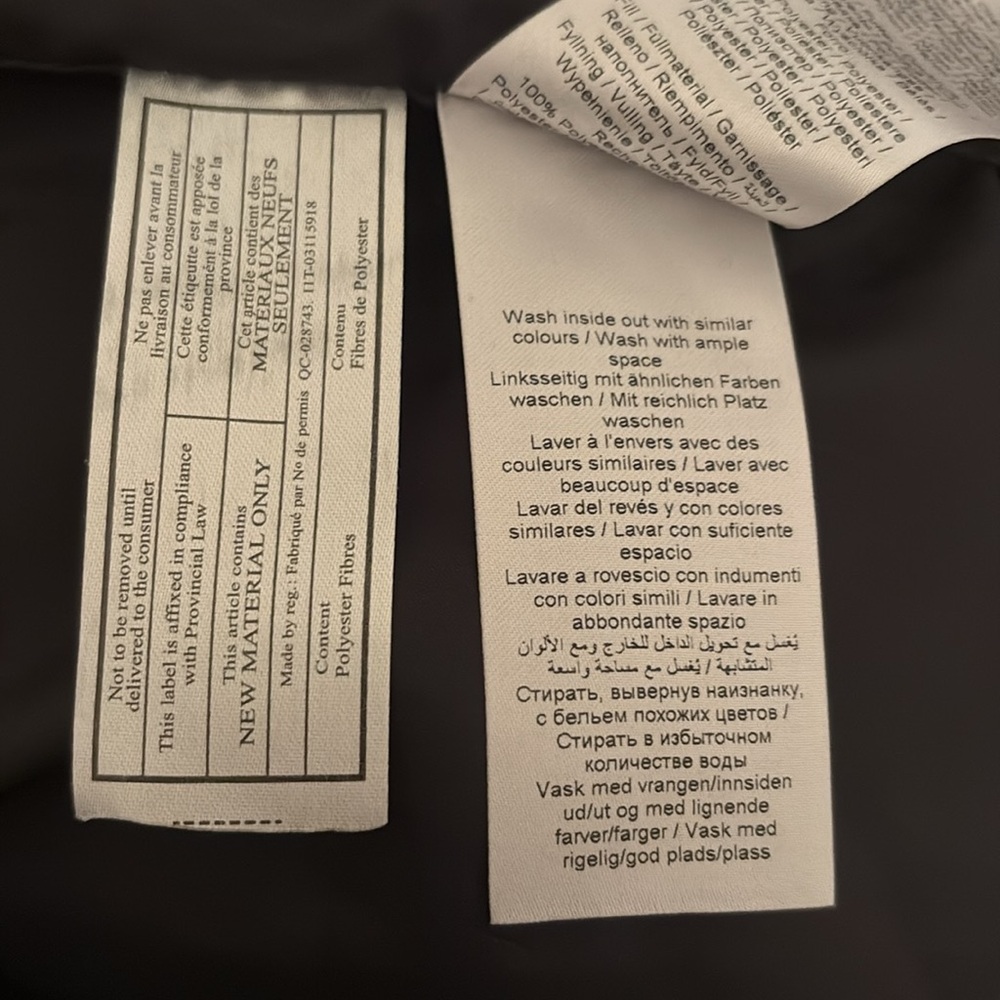 Not to be removed until
delivered to the consumer
Ne pas enlever avant la
livraison au consommateur
This label is affixed in compliance
with Provincial Law
Cette étiqeutte est apposée
conformément à la lof de la
province
This article contains
NEW MATERIAL ONLY
Cet article contient des
MATERIAUX NEUFS
SEULEMENT
Made by reg.: Fabriqué par No de permis QC-028743. 11T-03115918
Content
Polyester Fibres
Contenu
Fibres de Polyester
Fill / Füllmaterial / Garnissage /
Relleno / Riempimento /
наполнитель / Fyld/Fyll
Fylning / Vulling / Täyte /
Wypełnienie /
100%
Wash inside out with similar
colours / Wash with ample
space
Linksseitig mit ähnlichen Farben
waschen / Mit reichlich Platz
waschen
Laver à l'envers avec des
couleurs similaires / Laver avec
beaucoup d'espace
Lavar del revés y con colores
similares / Lavar con suficiente
espacio
Lavare a rovescio con indumenti
con colori simili / Lavare in
abbondante spazio
يُغسل مع تحويل الداخل للخارج ومع الألوان
المتشابهة / يُغسل مع مساحة واسعة
Стирать, вывернув наизнанку,
с бельем похожих цветов /
Стирать в избыточном
количестве воды
Vask med vrangen/innsiden
ud/ut og med lignende
farver/farger / Vask med
rigelig/god plads/plass